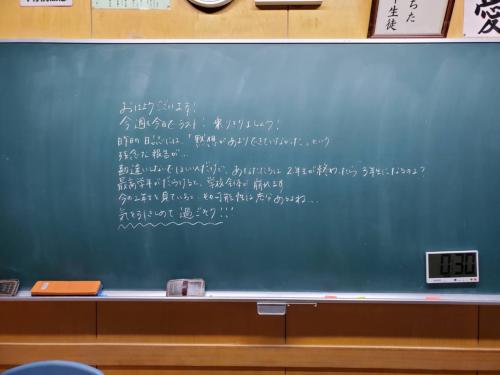 ちた
生徒
愛
おはようございます!
今週も今日でラスト! 乗りきりましょう!
昨日の日誌には、「黙想があまりできていなかった。」という
残念な報告が…
勘違いしないでほしいんだけど、あなたたちは2年生が終わったら3年生になるのよ?
最高学年がだらけると、学校全体が崩れます
今の2年生を見ていると、その可能性は充分あるよね…
気を引きしめて過ごそう!!!
0:30